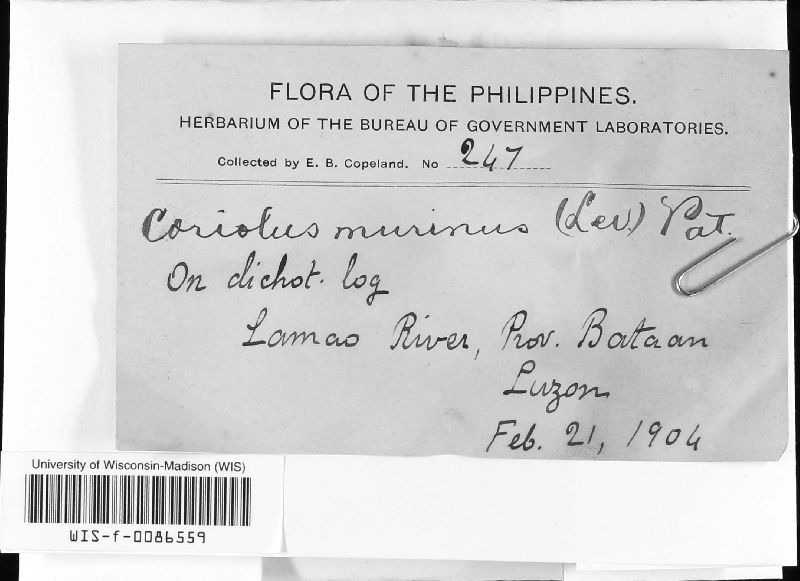 FLORA OF THE PHILIPPINES.
HERBARIUM OF THE BUREAU OF GOVERNMENT LABORATORIES.
Collected by E. B. Copeland. No 247
Coriolus murinus (Lev.) Pat.
On dichot. log
Lamao River, Prov. Bataan
Luzon
Feb. 21, 1904
University of Wisconsin-Madison (WIS)
WIS-f-0086559